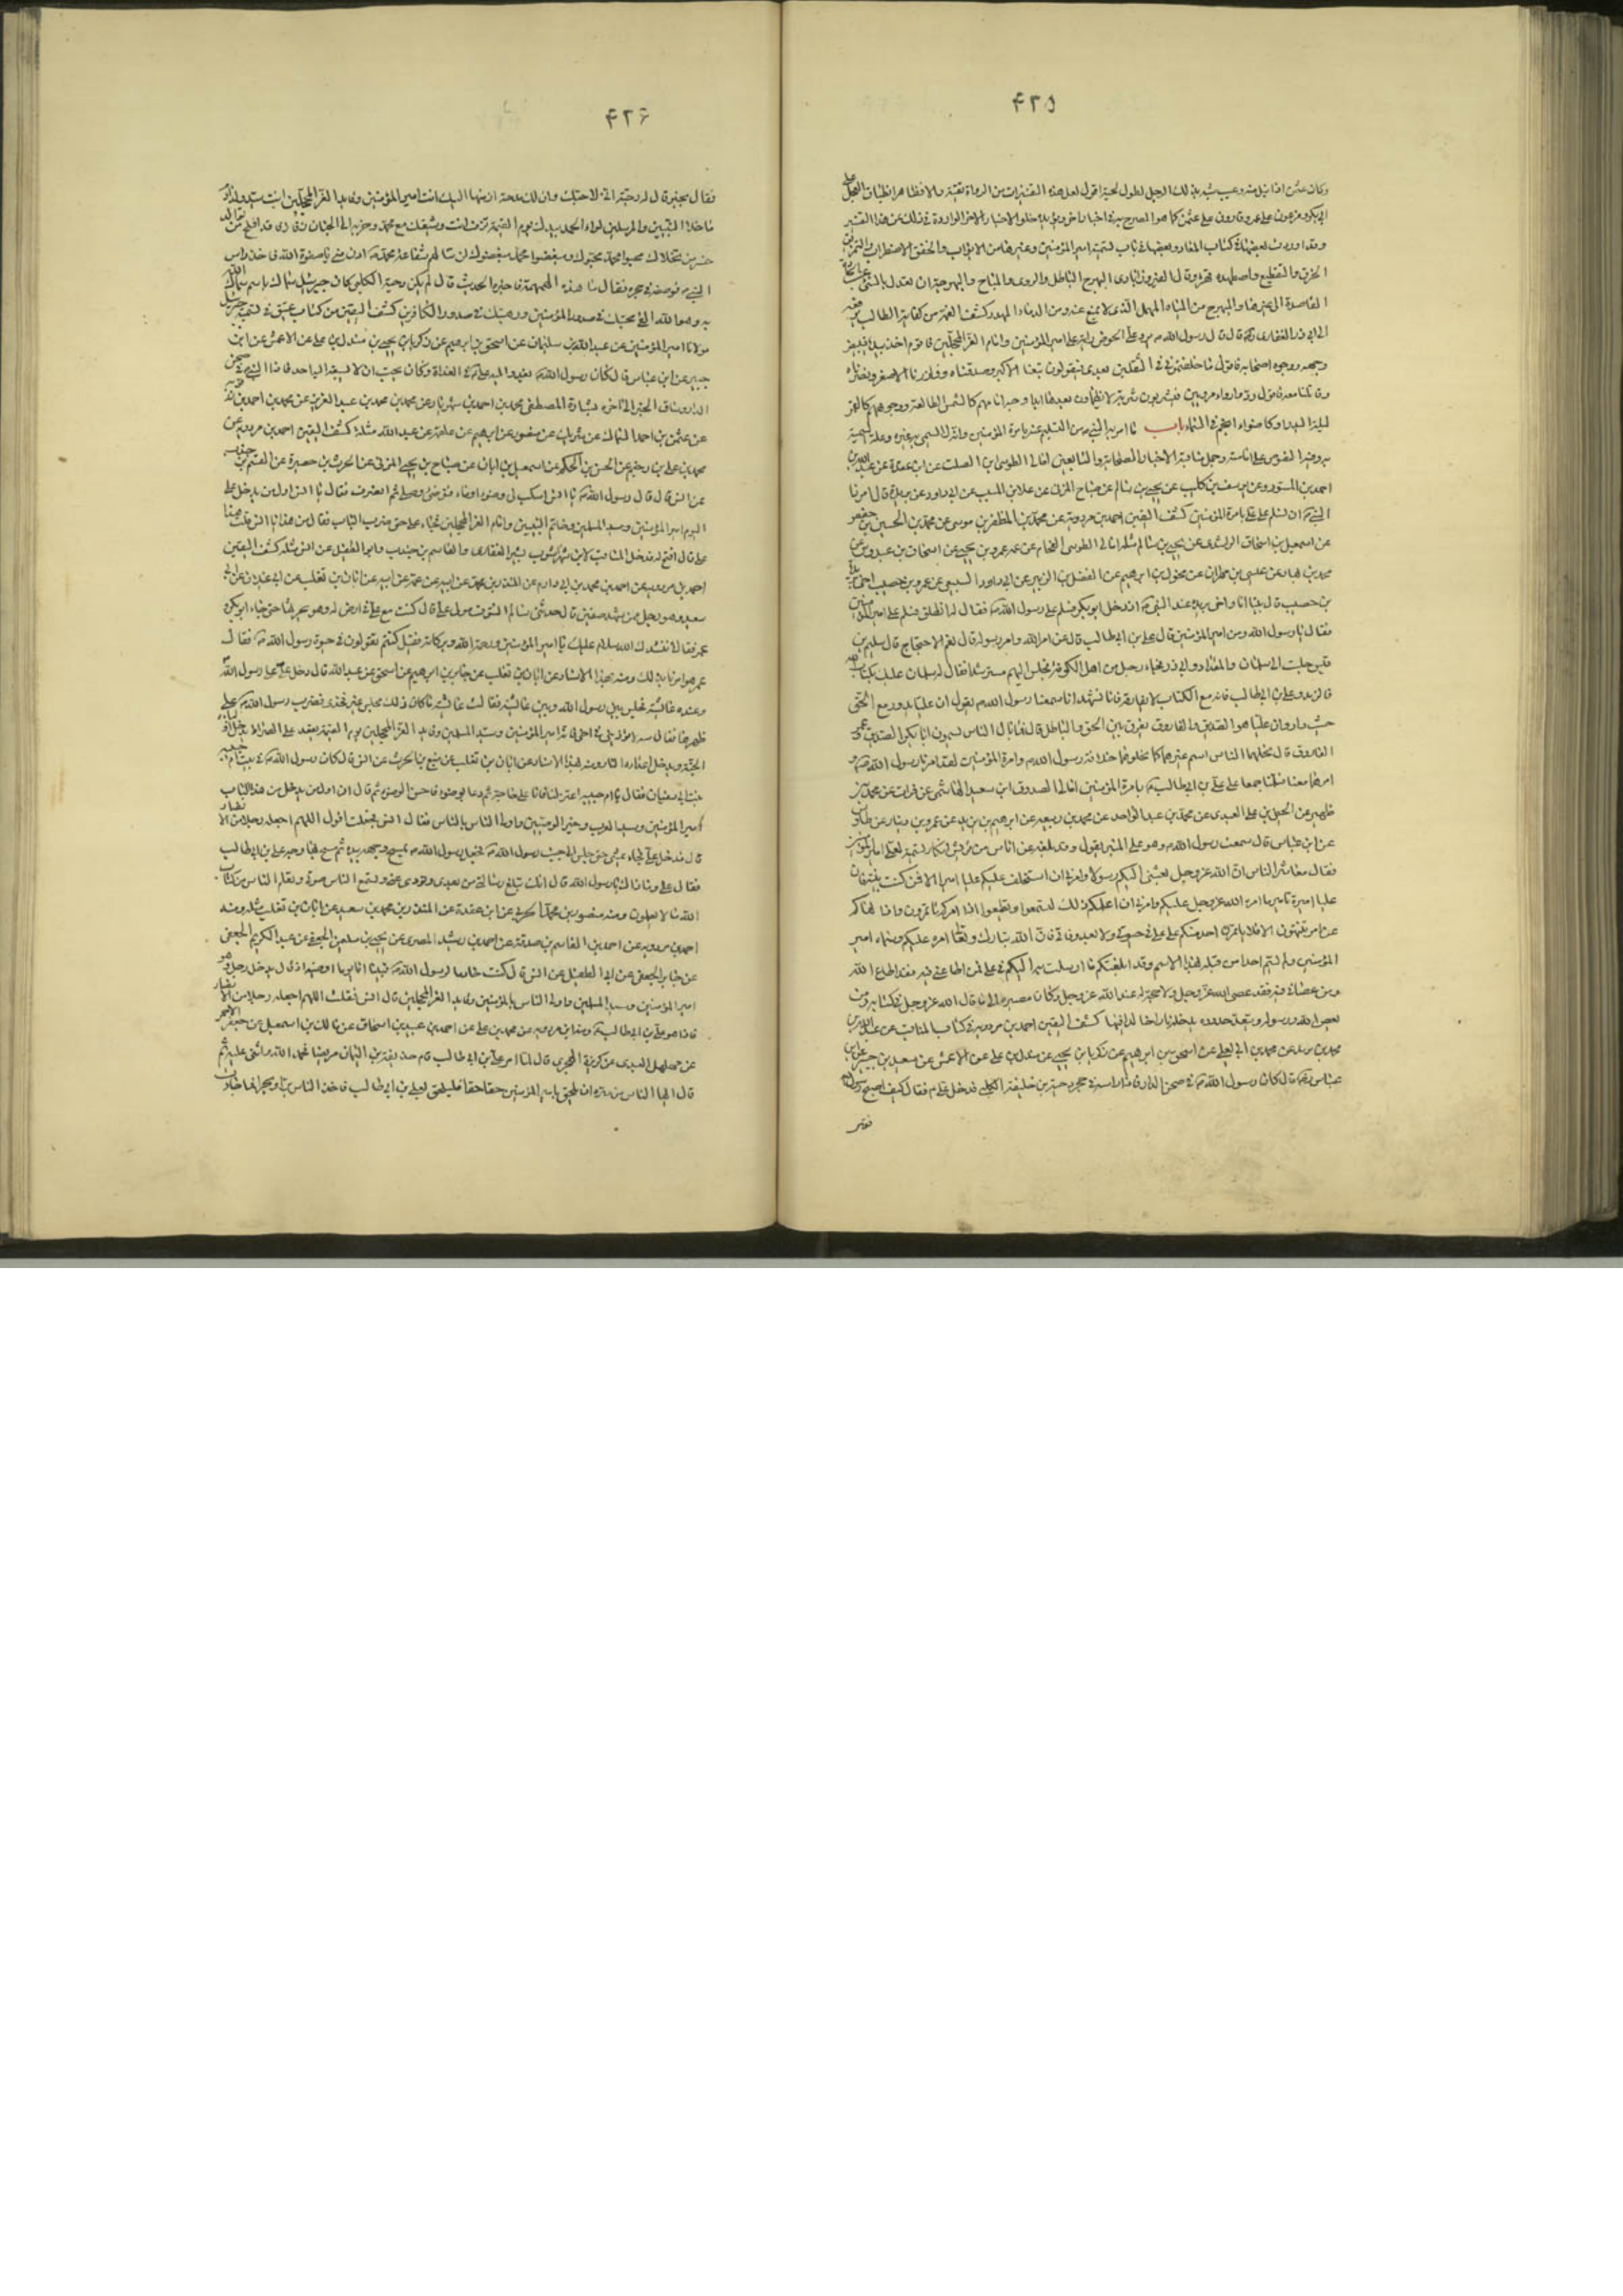 ۴۲۵
وكان عثمن اذا نيل منه وعيب شبه بذلك الرجل لطول لحيته اقول لعل هذه التفسيرات من الرواة تقية
ابي بكر وفرعون على عمر وقارون على عثمن كما هو المصرح به في اخبار اخر ويؤيده خلو الاخبار الاخر الواردة في ذلك عن هذا التفسير
وقد اوردت بعضها في كتاب المعاد وبعضها في باب تسمية امير المؤمنين وغيرهما من الابواب والخفق الاضطراب
الى ابي ذر الغفاري قال قال رسول الله يرد على الحوض راية على امير المؤمنين وامام الغر المحجلين فاقوم اخذ بيده فيبيض
وجهه ووجوه اصحابه فاقول ما خلفتموني في الثقلين بعدي فيقولون تبعنا الاكبر وصدقناه ووازرنا الاصغر ونصرناه
وقاتلنا معه فاقول ردوا رواء مرويين فيشربون شربة لا يظمأون بعدها ابدا وجه امامهم كالشمس الطالعة ووجوههم كالقمر
ليلة البدر او كاضواء انجم في السماء باب ما امر به النبي من التسليم عليه بامرة المؤمنين وانه لا يسمى به غيره وعلة التسمية
احمد بن المستورد عن يوسف بن كليب عن يحيى بن سالم عن صباح المزني عن علا بن المسيب عن ابي داود عن بريدة قال امرنا
النبي ان نسلم على علي بامرة المؤمنين كشف اليقين احمد بن مردويه عن محمد بن المظفر بن موسى عن محمد بن الحسين بن حفص
عن اسمعيل بن اسحاق الراشدي عن يحيى بن سالم مثله امالي الطوسي الفحام عن عمه عمرو بن يحيى عن اسحاق بن عبدوس عن
محمد بن بهار عن عيسى بن مهران عن مخول بن ابرهيم عن الفضل بن الزبير عن ابي داود السبيعي عن عمرو بن حصيب اخي بريدة
بن حصيب قال بينا انا واخي بريدة عند النبي اذ دخل ابو بكر فسلم على رسول الله فقال له انطلق فسلم على امير المؤمنين
فقال يا رسول الله ومن امير المؤمنين قال علي بن ابي طالب قال عن امر الله وامر رسوله قال نعم الاحتجاج قال سليم بن
قيس جلست الى سلمان والمقداد وابي ذر فجاء رجل من اهل الكوفة فجلس اليهم مسترشدا فقال له سلمان عليك بكتاب الله
فالزمه وعلي بن ابي طالب فانه مع الكتاب لا يفارقه فانا نشهد انا سمعنا رسول الله يقول ان عليا يدور مع الحق
حيث دار وان عليا هو الصديق والفاروق يفرق بين الحق والباطل قال فما بال الناس يسمون ابا بكر الصديق وعمر
الفاروق قال نحلهما الناس اسم غيرهما كما نحلوهما خلافة رسول الله وامرة المؤمنين لقد امرنا رسول الله
امرهما معنا فسلمنا جميعا على علي بن ابي طالب بامرة المؤمنين امالي الصدوق ابن سعيد الهاشمي عن فرات عن محمد بن
ظهير عن الحسين بن علي العبدي عن محمد بن عبد الواحد عن محمد بن ربيعة عن ابرهيم بن يزيد عن عمرو بن دينار عن طاوس
عن ابن عباس قال سمعت رسول الله وهو على المنبر يقول وقد بلغه عن اناس من قريش انكار تسميته لعلي امير المؤمنين
فقال معاشر الناس ان الله عز وجل بعثني اليكم رسولا وامرني ان استخلف عليكم عليا اميرا الا فمن كنت نبيه فان
عليا اميره تامير امره الله عز وجل عليكم وامرني ان اعلمكم ذلك لتسمعوا له وتطيعوا اذا امركم تاتمرون واذا نهاكم
عن امر تنتهون الا فلا ياتمرن احد منكم على علي في حيوتي ولا بعد وفاتي فان الله تبارك وتعالى امره عليكم وسماه امير
المؤمنين ولم يسم احدا من قبله بهذا الاسم وقد ابلغتكم ما ارسلت به اليكم في علي فمن اطاعني فيه فقد اطاع الله
ومن عصاني فيه فقد عصى الله عز وجل ولا حجة له عند الله عز وجل وكان مصيره الى ما قال الله عز وجل في كتابه ومن
يعص الله ورسوله ويتعد حدوده يدخله نارا خالدا فيها كشف اليقين احمد بن مردويه في كتاب المناقب عن عبد الله بن
محمد بن يزيد عن محمد بن ابي يعلى عن اسحق بن ابرهيم عن زكريا بن يحيى عن مندل بن علي عن الاعمش عن سعيد بن جبير عن ابن
عباس قال كان رسول الله في صحن الدار فاذا راسه في حجر دحية بن خليفة الكلبي فدخل علي فقال كيف اصبح رسول الله
فقال
۴۲۶
فقال بخير قال له دحية اني لاحبك وان لك مدحة ازفها اليك انت امير المؤمنين وقائد الغر المحجلين انت سيد ولد آدم
ما خلا النبيين والمرسلين لواء الحمد بيدك يوم القيمة تزف انت وشيعتك مع محمد وحزبه الى الجنان زفا زفا قد افلح من تولاك
وخسر من تخلاك محبوا محمد محبوك ومبغضوا محمد مبغضوك لن تنالهم شفاعة محمد ادن مني يا صفوة الله فاخذ راس
النبي فوضعه في حجره فقال ما هذه الهمهمة فاخبره الحديث قال لم يكن دحية الكلبي كان جبرئيل سماك باسم سماك الله
به وهو الذي القى محبتك في صدور المؤمنين ورهبتك في صدور الكافرين كشف اليقين من كتاب عتيق في تسمية جبرئيل
مولانا امير المؤمنين عن عبد الله بن سليمان عن اسحق بن ابرهيم عن زكريا بن يحيى بن مندل بن علي عن الاعمش عن ابن
جبير عن ابن عباس قال كان رسول الله يغدو اليه علي في الغداة وكان يحب ان لا يسبقه اليه احد فاذا النبي في صحن
الدار وساق الخبر الى اخره بشارة المصطفى محمد بن احمد بن شهريار عن محمد بن محمد بن عبد العزيز عن محمد بن احمد بن
عن عثمن بن احمد السماك عن شريك عن منصور عن ابرهيم عن علقمة عن عبد الله مثله كشف اليقين احمد بن مردويه عن
محمد بن علي بن رحيم عن الحسن بن الحكم عن اسمعيل بن ابان عن صباح بن يحيى المزني عن الحرث بن حصيرة عن القسم بن جندب
عن انس قال قال رسول الله يا انس اسكب لي وضوءا او ماء فتوضى وصلى ثم انصرف فقال يا انس اول من يدخل علي
اليوم امير المؤمنين وسيد المسلمين وخاتم النبيين وامام الغر المحجلين فجاء علي حتى ضرب الباب فقال من هذا يا انس قلت هذا
علي قال افتح له فدخل المناقب لابن شهراشوب بشير الغفاري والقاسم بن جندب وابو الطفيل عن انس مثله كشف اليقين
احمد بن مردويه عن احمد بن محمد بن ابي دارم عن المنذر بن محمد عن ابيه عن عمه عن ابيه عن ابان بن تغلب عن ابي غيلان عن ابي
سعيد وهو رجل ممن شهد صفين قال حدثني سالم المنتوف مولى علي قال كنت مع علي في ارض له وهو يحرثها حتى جاء ابو بكر و
عمر فقالا ننشدك الله سلام عليك يا امير المؤمنين ورحمة الله وبركاته فقيل كنتم تقولون في حيوة رسول الله فقال
عمر هو امرنا بذلك ومنه بهذا الاسناد عن ابان بن تغلب عن جابر بن ابرهيم عن اسحق عن عبد الله قال دخل علي على رسول الله
وعنده عائشة فجلس بين رسول الله وبين عائشة فقالت عائشة ما كان لك مجلس غير فخذي فضرب رسول الله على
ظهرها فقال مه لا تؤذيني في اخي فانه امير المؤمنين وسيد المسلمين وقائد الغر المحجلين يوم القيمة يقعد على الصراط
الجنة ويدخل اعداءه النار ومنه بهذا الاسناد عن ابان بن تغلب عن نبيع بن الحرث عن انس قال كان رسول الله في بيت ام حبيبة
بنت ابي سفيان فقال يا ام حبيبة اعتزلينا فانا على حاجة ثم دعا بوضوء فاحسن الوضوء ثم قال ان اول من يدخل من هذا الباب
امير المؤمنين وسيد العرب وخير الوصيين واولى الناس بالناس فقال انس فجعلت اقول اللهم اجعله رجلا من الانصار
قال فدخل علي فجاء يمشي حتى جلس الى جنب رسول الله فجعل رسول الله يمسح وجهه بيده ثم مسح بها وجه علي بن ابي طالب
فقال علي وما ذاك يا رسول الله قال انك تبلغ رسالتي من بعدي وتؤدي عني وتسمع الناس صوتي وتعلم الناس من كتاب
الله ما لا يعلمون ومنه منصور بن محمد الحربي عن ابن عقدة عن المنذر بن محمد بن سعيد عن ابان بن تغلب مثله ومنه
احمد بن مردويه عن احمد بن القاسم بن صدقة عن احمد بن رشيد المصري عن يحيى بن سليمن الجعفي عن عبد الكريم الجعفي
عن جابر الجعفي عن ابي الطفيل عن انس قال كنت خادما لرسول الله فبينا انا يوما اوضيه اذ قال يدخل رجل وهو
امير المؤمنين وسيد المسلمين واولى الناس بالمؤمنين وقائد الغر المحجلين قال انس فقلت اللهم اجعله رجلا من الانصار
فاذا هو علي بن ابي طالب ومنه ابن مردويه عن محمد بن علي عن احمد بن عبيد بن اسحاق عن مالك بن اسمعيل عن جعفر الاحمر
عن مهلهل العبدي عن كريزة الهجري قال لما امر علي بن ابي طالب قام حذيفة بن اليمان مريضا فحمد الله واثنى عليه ثم
قال ايها الناس من سره ان يلحق بامير المؤمنين حقا حقا فليلحق بعلي بن ابي طالب فاخذ الناس برا وبحرا فما جاءت